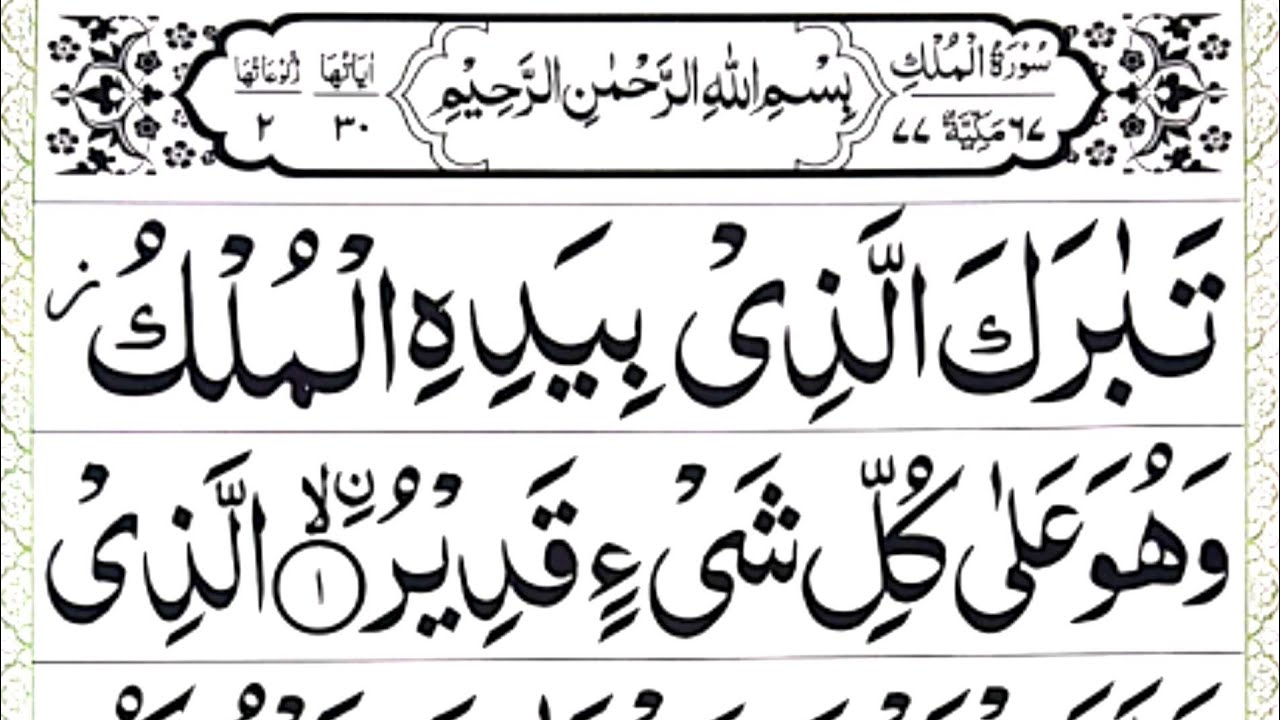 سُوْرَةُ الْمُلْكِ
٦٧ مَكِّيَّةٌ ٧٧
بِسْمِ اللّٰهِ الرَّحْمٰنِ الرَّحِيْمِ
اٰيَاتُهَا ٣٠
رُكُوْعَاتُهَا ٢
تَبٰرَكَ الَّذِىْ بِيَدِهِ الْمُلْكُ ز
وَهُوَ عَلٰى كُلِّ شَىْءٍ قَدِيْرُ نِ لا ١ الَّذِىْ